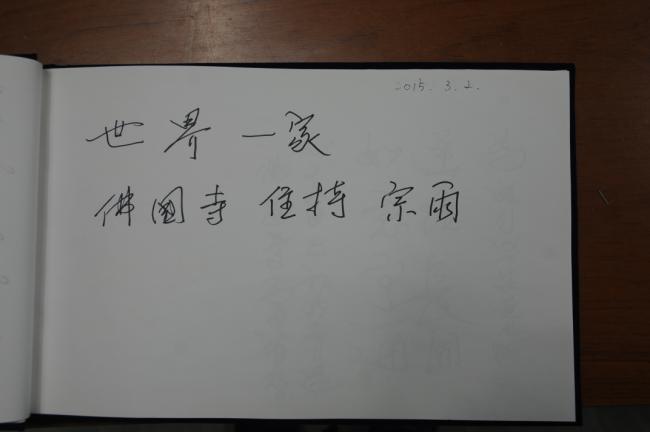 2015. 3. 2.
世界 一家
佛國寺 住持 宗雨